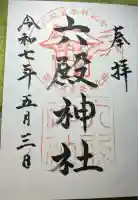 奉拝
六殿神社
令和七年五月三日